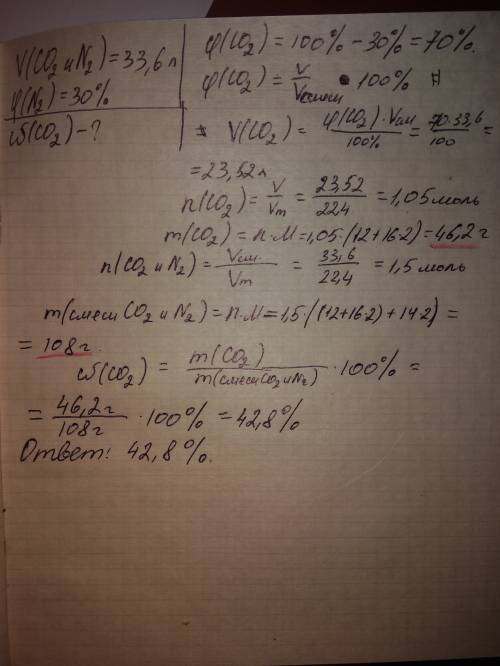 V(CO₂ и N₂) = 33,6 л
φ(N₂) = 30%
ω(CO₂) - ?
φ(CO₂) = 100% - 30% = 70%.
φ(CO₂) = V/Vсмеси · 100%
V(CO₂) = φ(CO₂)·Vсм/100% = 70·33,6/100 =
= 23,52 л
n(CO₂) = V/Vm = 23,52/22,4 = 1,05 моль
m(CO₂) = n·M = 1,05·(12+16·2) = 46,2 г
n(CO₂ и N₂) = Vсм./Vm = 33,6/22,4 = 1,5 моль
m(смеси CO₂ и N₂) = n·M = 1,5·((12+16·2)+14·2) =
= 108 г.
ω(CO₂) = m(CO₂)/m(смеси CO₂ и N₂) · 100% =
= 46,2 г/108 г · 100% = 42,8%
Ответ: 42,8%.